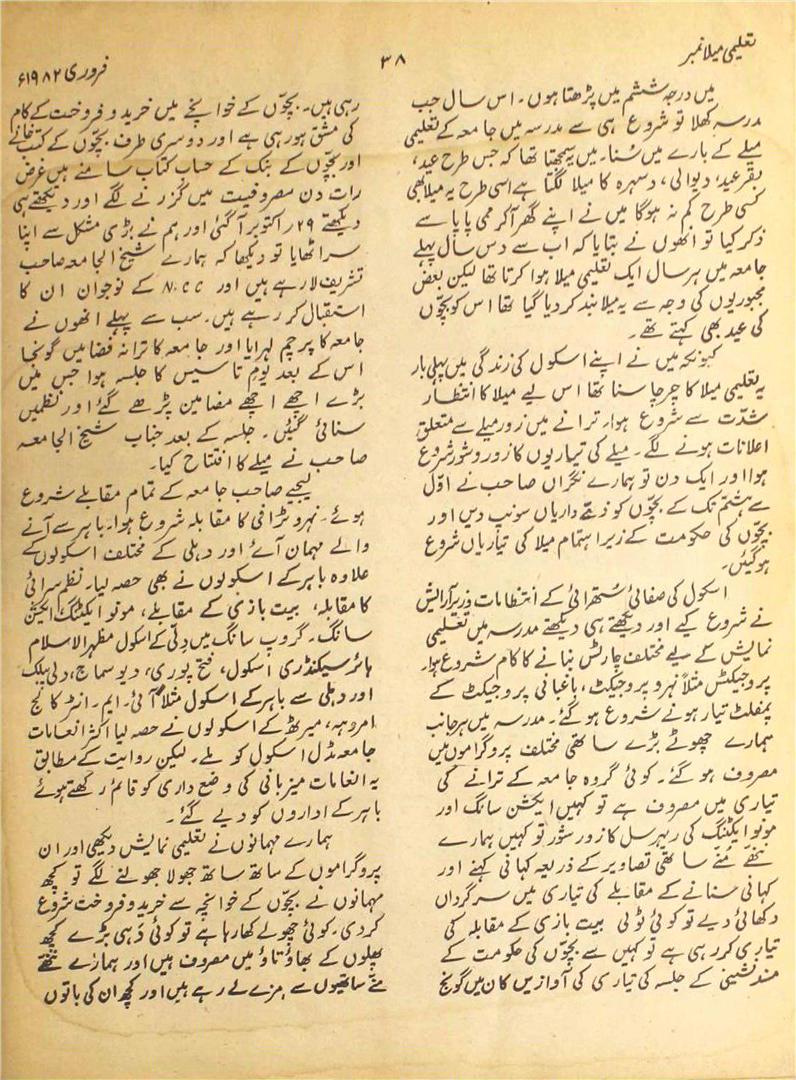 تعلیمی میلا نمبر
۳۸
فروری ۱۹۸۲ء
میں درجہ ششم میں پڑھتا ہوں۔ اس سال جب
مدرسہ کھلا تو شروع ہی سے مدرسہ میں جامعہ کے تعلیمی
میلے کے بارے میں سُنا۔ میں سمجھتا تھا کہ جس طرح عید،
بقرعید، دیوالی، دسہرہ کا میلا لگتا ہے اسی طرح یہ میلا بھی
کسی طرح کم نہ ہوگا میں نے اپنے گھر آکر ممی پاپا سے
ذکر کیا تو انھوں نے بتایا کہ اب سے دس سال پہلے
جامعہ میں ہر سال ایک تعلیمی میلا ہوا کرتا تھا لیکن بعض
مجبوریوں کی وجہ سے یہ میلا بند کر دیا گیا تھا اس کو بچّوں
کی عید بھی کہتے تھے۔
کیونکہ میں نے اپنے اسکول کی زندگی میں پہلی بار
یہ تعلیمی میلا کا چرچا سنا تھا اس لیے میلا کا انتظار
شدّت سے شروع ہوا۔ ترانے میں زور میلے سے متعلق
اعلانات ہونے لگے۔ میلے کی تیاریوں کا زور و شور شروع
ہوا اور ایک دن تو ہمارے نگراں صاحب نے اوّل
سے ہشتم تک کے بچّوں کو ذمّے داریاں سونپ دیں اور
بچّوں کی حکومت کے زیر اہتمام میلا کی تیاریاں شروع
ہوگئیں۔
اسکول کی صفائی سُتھرائی کے انتظامات وزیر آرایش
نے شروع کیے اور دیکھتے ہی دیکھتے مدرسہ میں تعلیمی
نمایش کے لیے مختلف چارٹس بنانے کا کام شروع ہوا۔
پروجیکٹس مثلاً نہرو پروجیکٹ، باغبانی پروجیکٹ کے
پمفلٹ تیار ہونے شروع ہوگئے۔ مدرسہ میں ہر جانب
ہمارے چھوٹے بڑے ساتھی مختلف پروگراموں میں
مصروف ہوگئے۔ کوئی گروہ جامعہ کے ترانے کی
تیاری میں مصروف ہے تو کہیں ایکشن سانگ اور
مونو ایکٹنگ کی ریہرسل کا زور شور تو کہیں ہمارے
ننھّے منّے ساتھی تصاویر کے ذریعہ کہانی کہنے اور
کہانی سنانے کے مقابلے کی تیاری میں سرگرداں
دکھائی دیے تو کوئی ٹولی بیت بازی کے مقابلہ کی
تیاری کر رہی ہے تو کہیں سے بچّوں کی حکومت کے
مسند نشینی کے جلسہ کی تیاری کی آوازیں کان میں گونج
رہی ہیں۔ بچّوں کے خوانچے میں خرید و فروخت کے کام
کی مشق ہو رہی ہے اور دوسری طرف بچّوں کے کتب خانے
اور بچّوں کے بنک کے حساب کتاب سامنے ہیں غرض
رات دن مصروفیت میں گزرنے لگے اور دیکھتے ہی
دیکھتے ۲۹ر اکتوبر آگئی اور ہم نے بڑی مشکل سے اپنا
سر اٹھایا تو دیکھا کہ ہمارے شیخ الجامعہ صاحب
تشریف لا رہے ہیں اور N.CC کے نوجوان ان کا
استقبال کر رہے ہیں۔ سب سے پہلے انھوں نے
جامعہ کا پرچم لہرایا اور جامعہ کا ترانہ فضا میں گونجا
اس کے بعد یومِ تاسیس کا جلسہ ہوا جس میں
بڑے اچھے اچھے مضامین پڑھے گئے اور نظمیں
سنائی گئیں۔ جلسہ کے بعد جناب شیخ الجامعہ
صاحب نے میلے کا افتتاح کیا۔
لیجیے صاحب جامعہ کے تمام مقابلے شروع
ہوئے۔ نہرو ٹرافی کا مقابلہ شروع ہوا۔ باہر سے آنے
والے مہمان آئے اور دہلی کے مختلف اسکولوں کے
علاوہ باہر کے اسکولوں نے بھی حصہ لیا۔ نظم سرائی
کا مقابلہ، بیت بازی کے مقابلے، مونو ایکٹنگ، ایکشن
سانگ۔ گروپ سانگ میں دلّی کے اسکول مظہرالاسلام
ہائر سیکنڈری اسکول، فتح پوری، دیو سماج، دلی پبلک
اور دہلی سے باہر کے اسکول مثلاً آئی۔ ایم۔ انٹر کالج
امروہہ، میرٹھ کے اسکولوں نے حصہ لیا اکثر انعامات
جامعہ مڈل اسکول کو ملے۔ لیکن روایت کے مطابق
یہ انعامات میزبانی کی وضع داری کو قائم رکھتے ہوئے
باہر کے اداروں کو دیے گئے۔
ہمارے مہمانوں نے تعلیمی نمایش دیکھی اور ان
پروگراموں کے ساتھ ساتھ جھولا جھولنے لگے تو کچھ
مہمانوں نے بچّوں کے خوانچے سے خرید و فروخت شروع
کر دی۔ کوئی چھولے کھا رہا ہے تو کوئی دہی بڑے کچھ
پھلوں کے بھاؤ تاؤ میں مصروف ہیں اور ہمارے ننھّے
منّے ساتھیوں سے مزے لے رہے ہیں اور کچھ ان کی باتوں